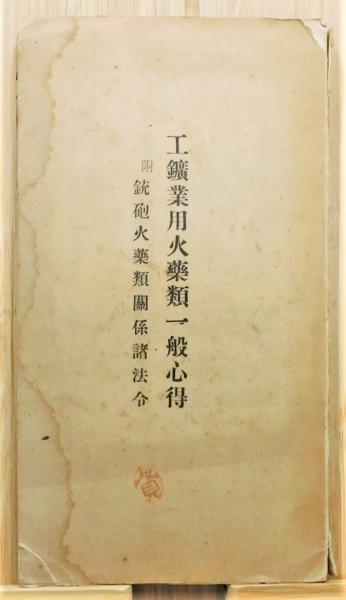 工鑛業用火藥類一般心得
附 銃砲火藥類關係諸法令